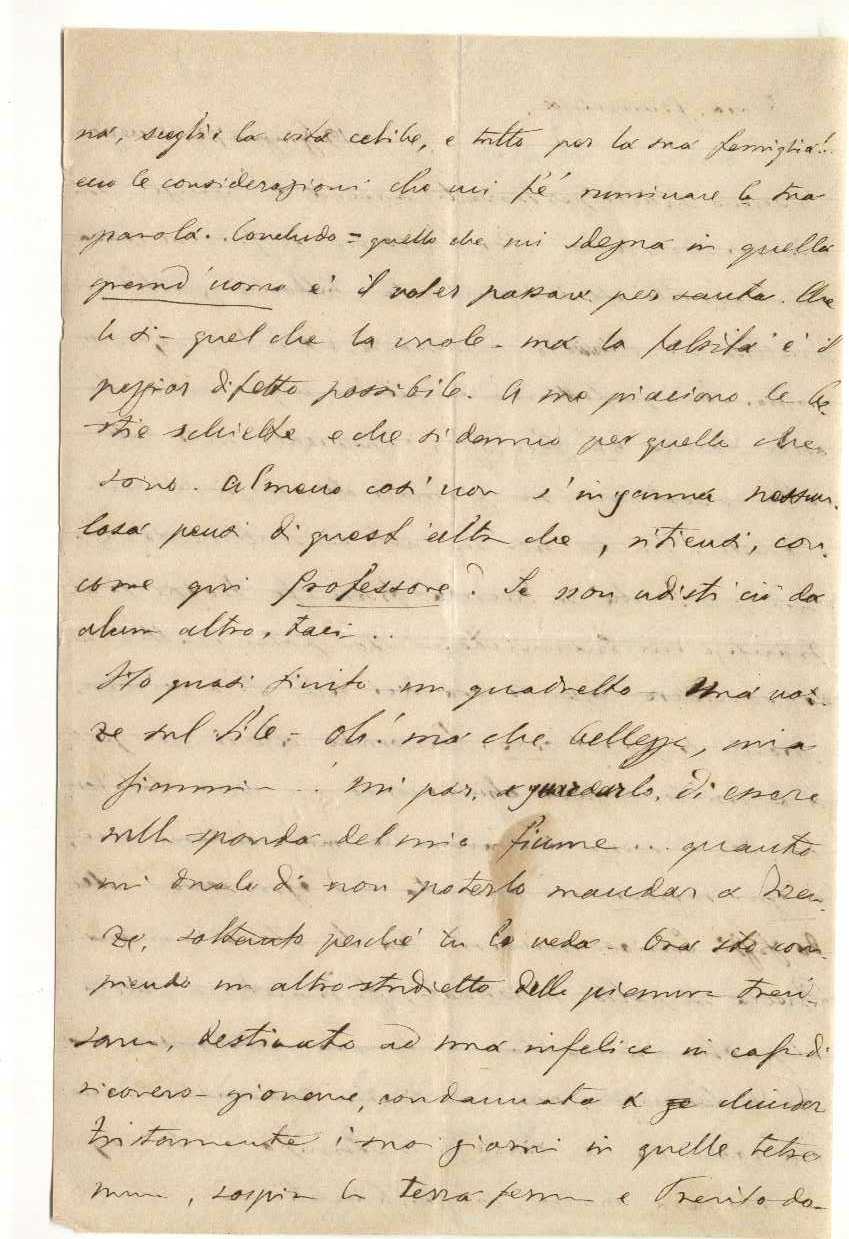 na, sceglie la vita celibe, e tutto per la sua famiglia!..
ecco le considerazioni che mi fe' ruminare la tua
parola. Concludo = quello che mi sdegna in quella
grand'uomo è il voler passare per santa. Che
la si - quel che la vuole - ma la falsità è il
peggior difetto possibile. A me piaciono le be-
stie schiette e che si danno per quelle che
sono. almeno così non s'inganna nessun.
Cosa pensi di quest'altra che, ritiensi, con-
come qui Professore? Se non udisti ciò da
alcun altro, taci..
Ho quasi finito un quadretto - una
sul Sile - Oh! ma che bellezza, mia
! mi par, a guardarlo, di essere
sulla sponda del mio fiume... quanto
mi duole di non poterlo mandar a Firen-
ze, soltanto perché tu lo veda - Ora sto com-
piendo un altro studietto della pianura trevi-
sana, destinato ad una infelice in casa di
ricovero - giovane, condannata a chiuder
tristamente i suoi giorni in quelle tetre
mura, sospira la terra ferma e Treviso do-